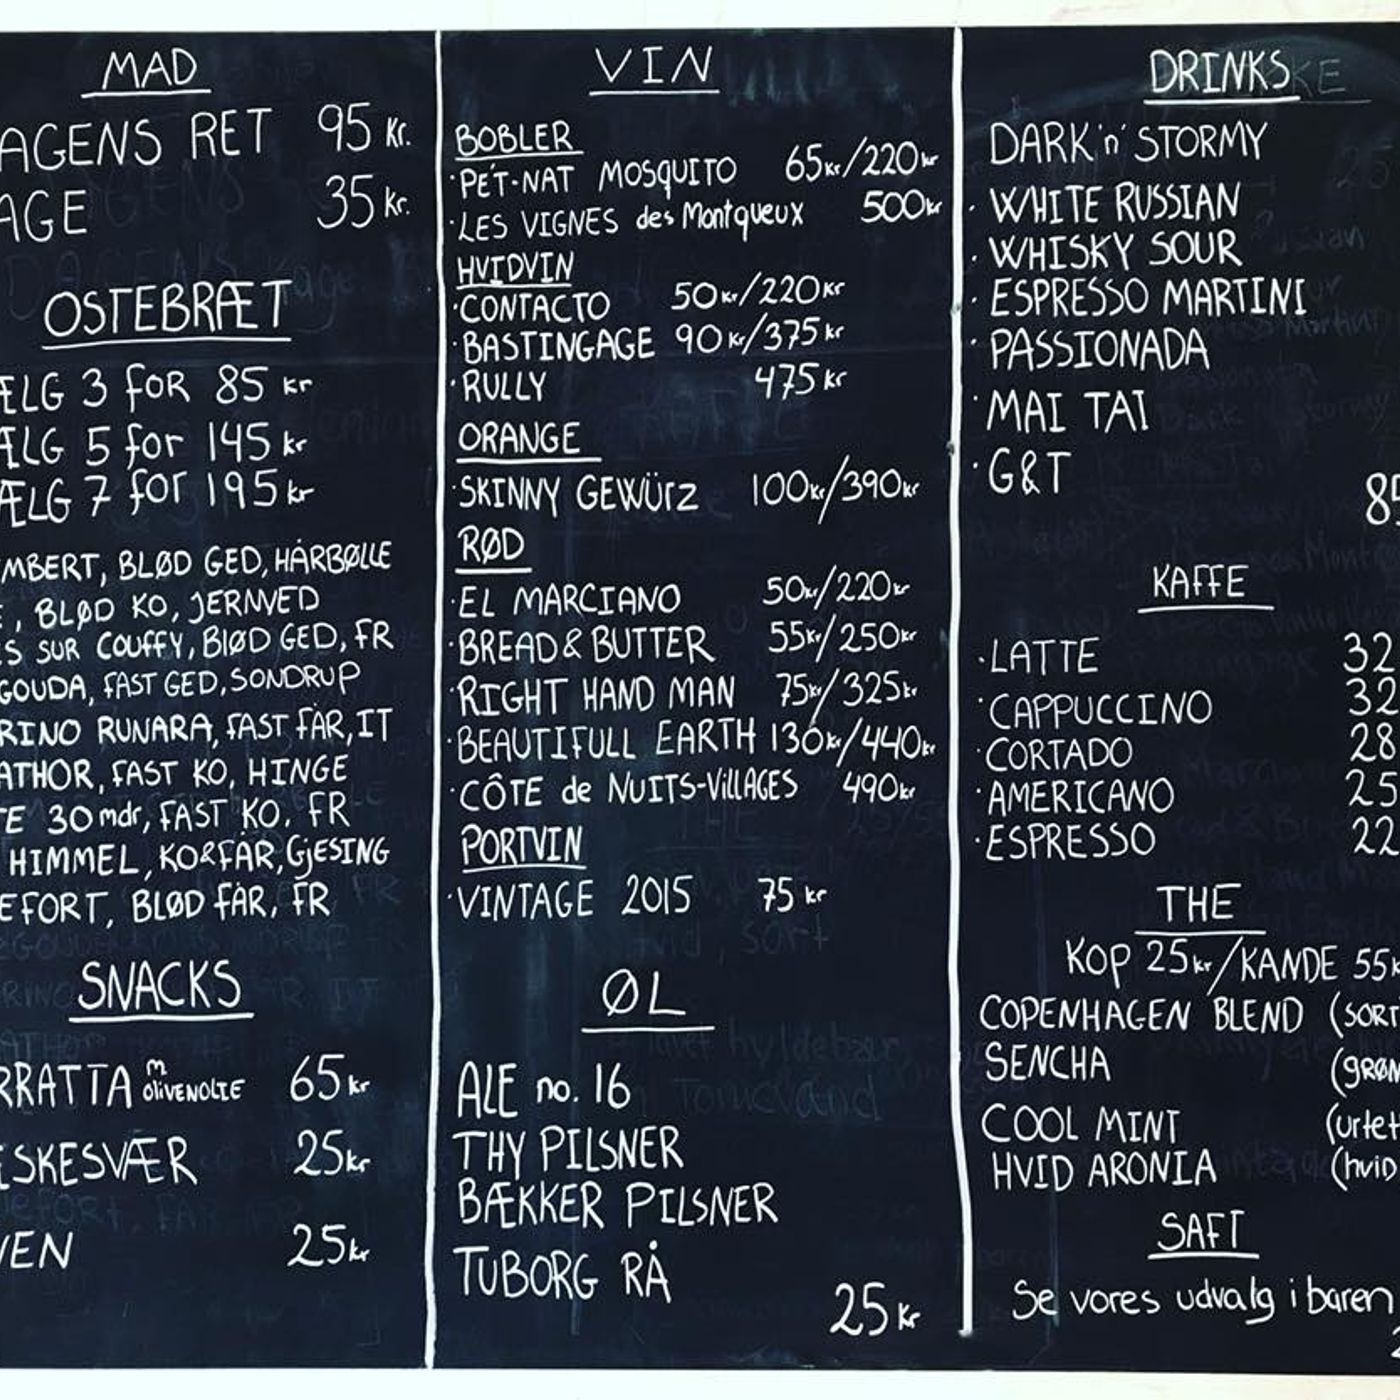 MAD
AGENS RET 95 Kr.
AGE 35 Kr.
OSTEBRÆT
ÆLG 3 FOR 85 kr
ÆLG 5 for 145 kr
ÆLG 7 for 195 kr
MBERT, BLØD GED, HÅRBØLLE
E, BLØD KO, JERNVED
ES SUR COUFFY, BLØD GED, FR
GOUDA, FAST GED, SONDRUP
RINO RUNARA, FAST FÅR, IT
ATHOR, FAST KO, HINGE
TE 30 mdr, FAST KO, FR
HIMMEL, KO&FÅR, GJESING
EFORT, BLØD FÅR, FR
SNACKS
RRATTA m olivenolie 65 kr
ESKESVÆR 25 kr
VEN 25 kr
VIN
BOBLER
·PÉT-NAT MOSQUITO 65 kr/220 kr
·LES VIGNES des Montqueux 500 kr
HVIDVIN
·CONTACTO 50 kr/220 kr
·BASTINGAGE 90 kr/375 kr
·RULLY 475 kr
ORANGE
·SKINNY GEWÜrz 100 kr/390 kr
RØD
·EL MARCIANO 50 kr/220 kr
·BREAD & BUTTER 55 kr/250 kr
·RIGHT HAND MAN 75 kr/325 kr
·BEAUTIFULL EARTH 130 kr/440 kr
·CÔTE de NUITS-VILLAGES 490 kr
PORTVIN
·VINTAGE 2015 75 kr
ØL
ALE no. 16
THY PILSNER
BÆKKER PILSNER
TUBORG RÅ
25 kr
DRINKS
DARK 'n' STORMY
· WHITE RUSSIAN
· WHISKY SOUR
· ESPRESSO MARTINI
· PASSIONADA
· MAI TAI
· G&T
85
KAFFE
·LATTE 32
·CAPPUCCINO 32
·CORTADO 28
·AMERICANO 25
·ESPRESSO 22
THE
KOP 25 kr/KANDE 55 k
COPENHAGEN BLEND (SORT
SENCHA (GRØN
COOL MINT (urtet
HVID ARONIA (hvid
SAFT
Se vores udvalg i baren